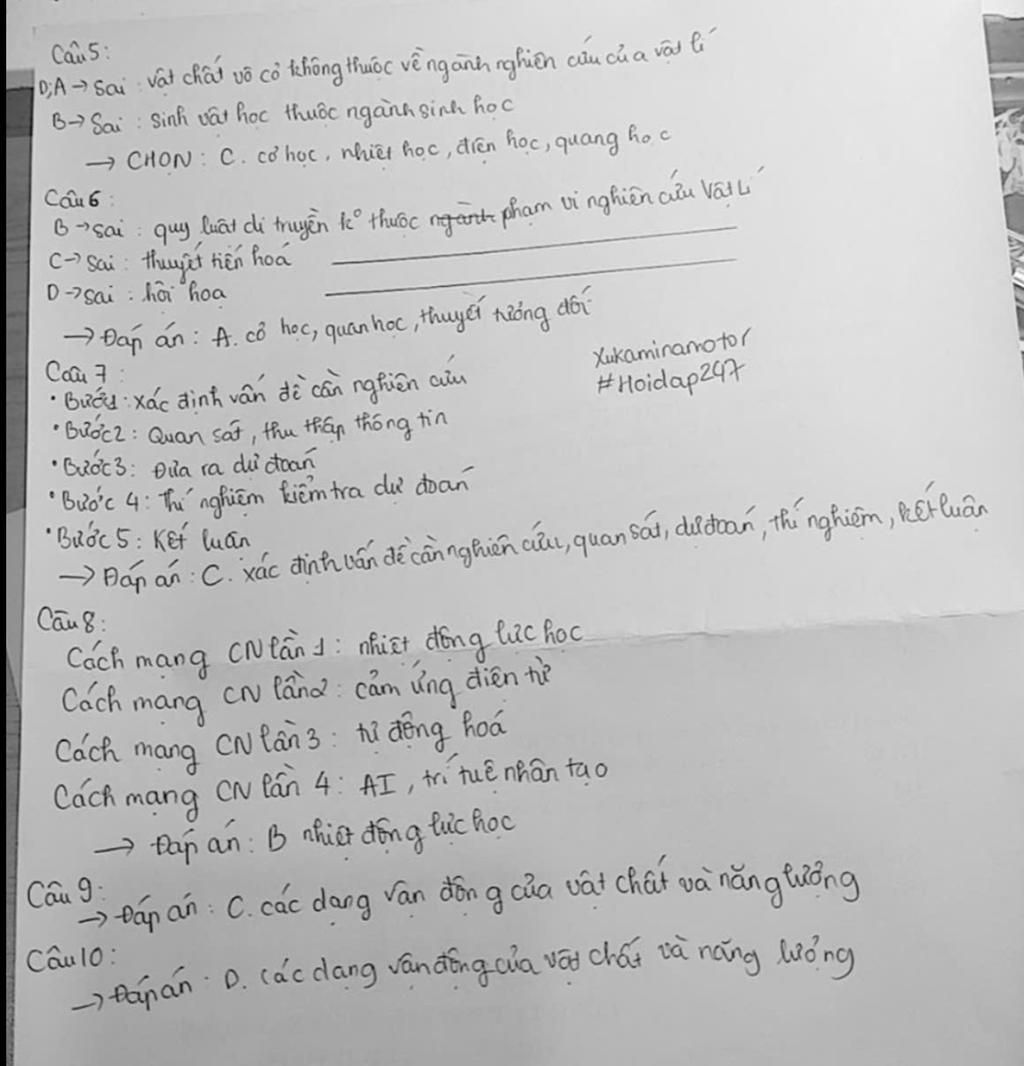 Câu 5:
D;A → Sai : vật chất vô cơ không thuộc về ngành nghiên cứu của vật lí
B → Sai : sinh vật học thuộc ngành sinh học
→ CHỌN : C. cơ học, nhiệt học, điện học, quang học
Câu 6 :
B → sai : quy luật di truyền k° thuộc ngành phạm vi nghiên cứu Vật Lí
C → sai : thuyết tiến hoá
D → sai : hội hoạ
→ Đáp án : A. cơ học, quan học, thuyết tương đối
Câu 7 :
• Bước 1 : xác định vấn đề cần nghiên cứu
• Bước 2 : Quan sát, thu thập thông tin
• Bước 3 : Đưa ra dự đoán
• Bước 4 : Thí nghiệm kiểm tra dự đoán
• Bước 5 : Kết luận
→ Đáp án : C. xác định vấn đề cần nghiên cứu, quan sát, dự đoán, thí nghiệm, kết luận
Xukaminamotor
#Hoidap247
Câu 8 :
Cách mạng CN lần 1 : nhiệt động lực học
Cách mạng CN lần 2 : cảm ứng điện từ
Cách mạng CN lần 3 : tự động hoá
Cách mạng CN lần 4 : AI, trí tuệ nhân tạo
→ Đáp án : B nhiệt động lực học
Câu 9 :
→ Đáp án : C. các dạng vận động của vật chất và năng lượng
Câu 10 :
→ Đáp án : D. các dạng vận động của vật chất và năng lượng